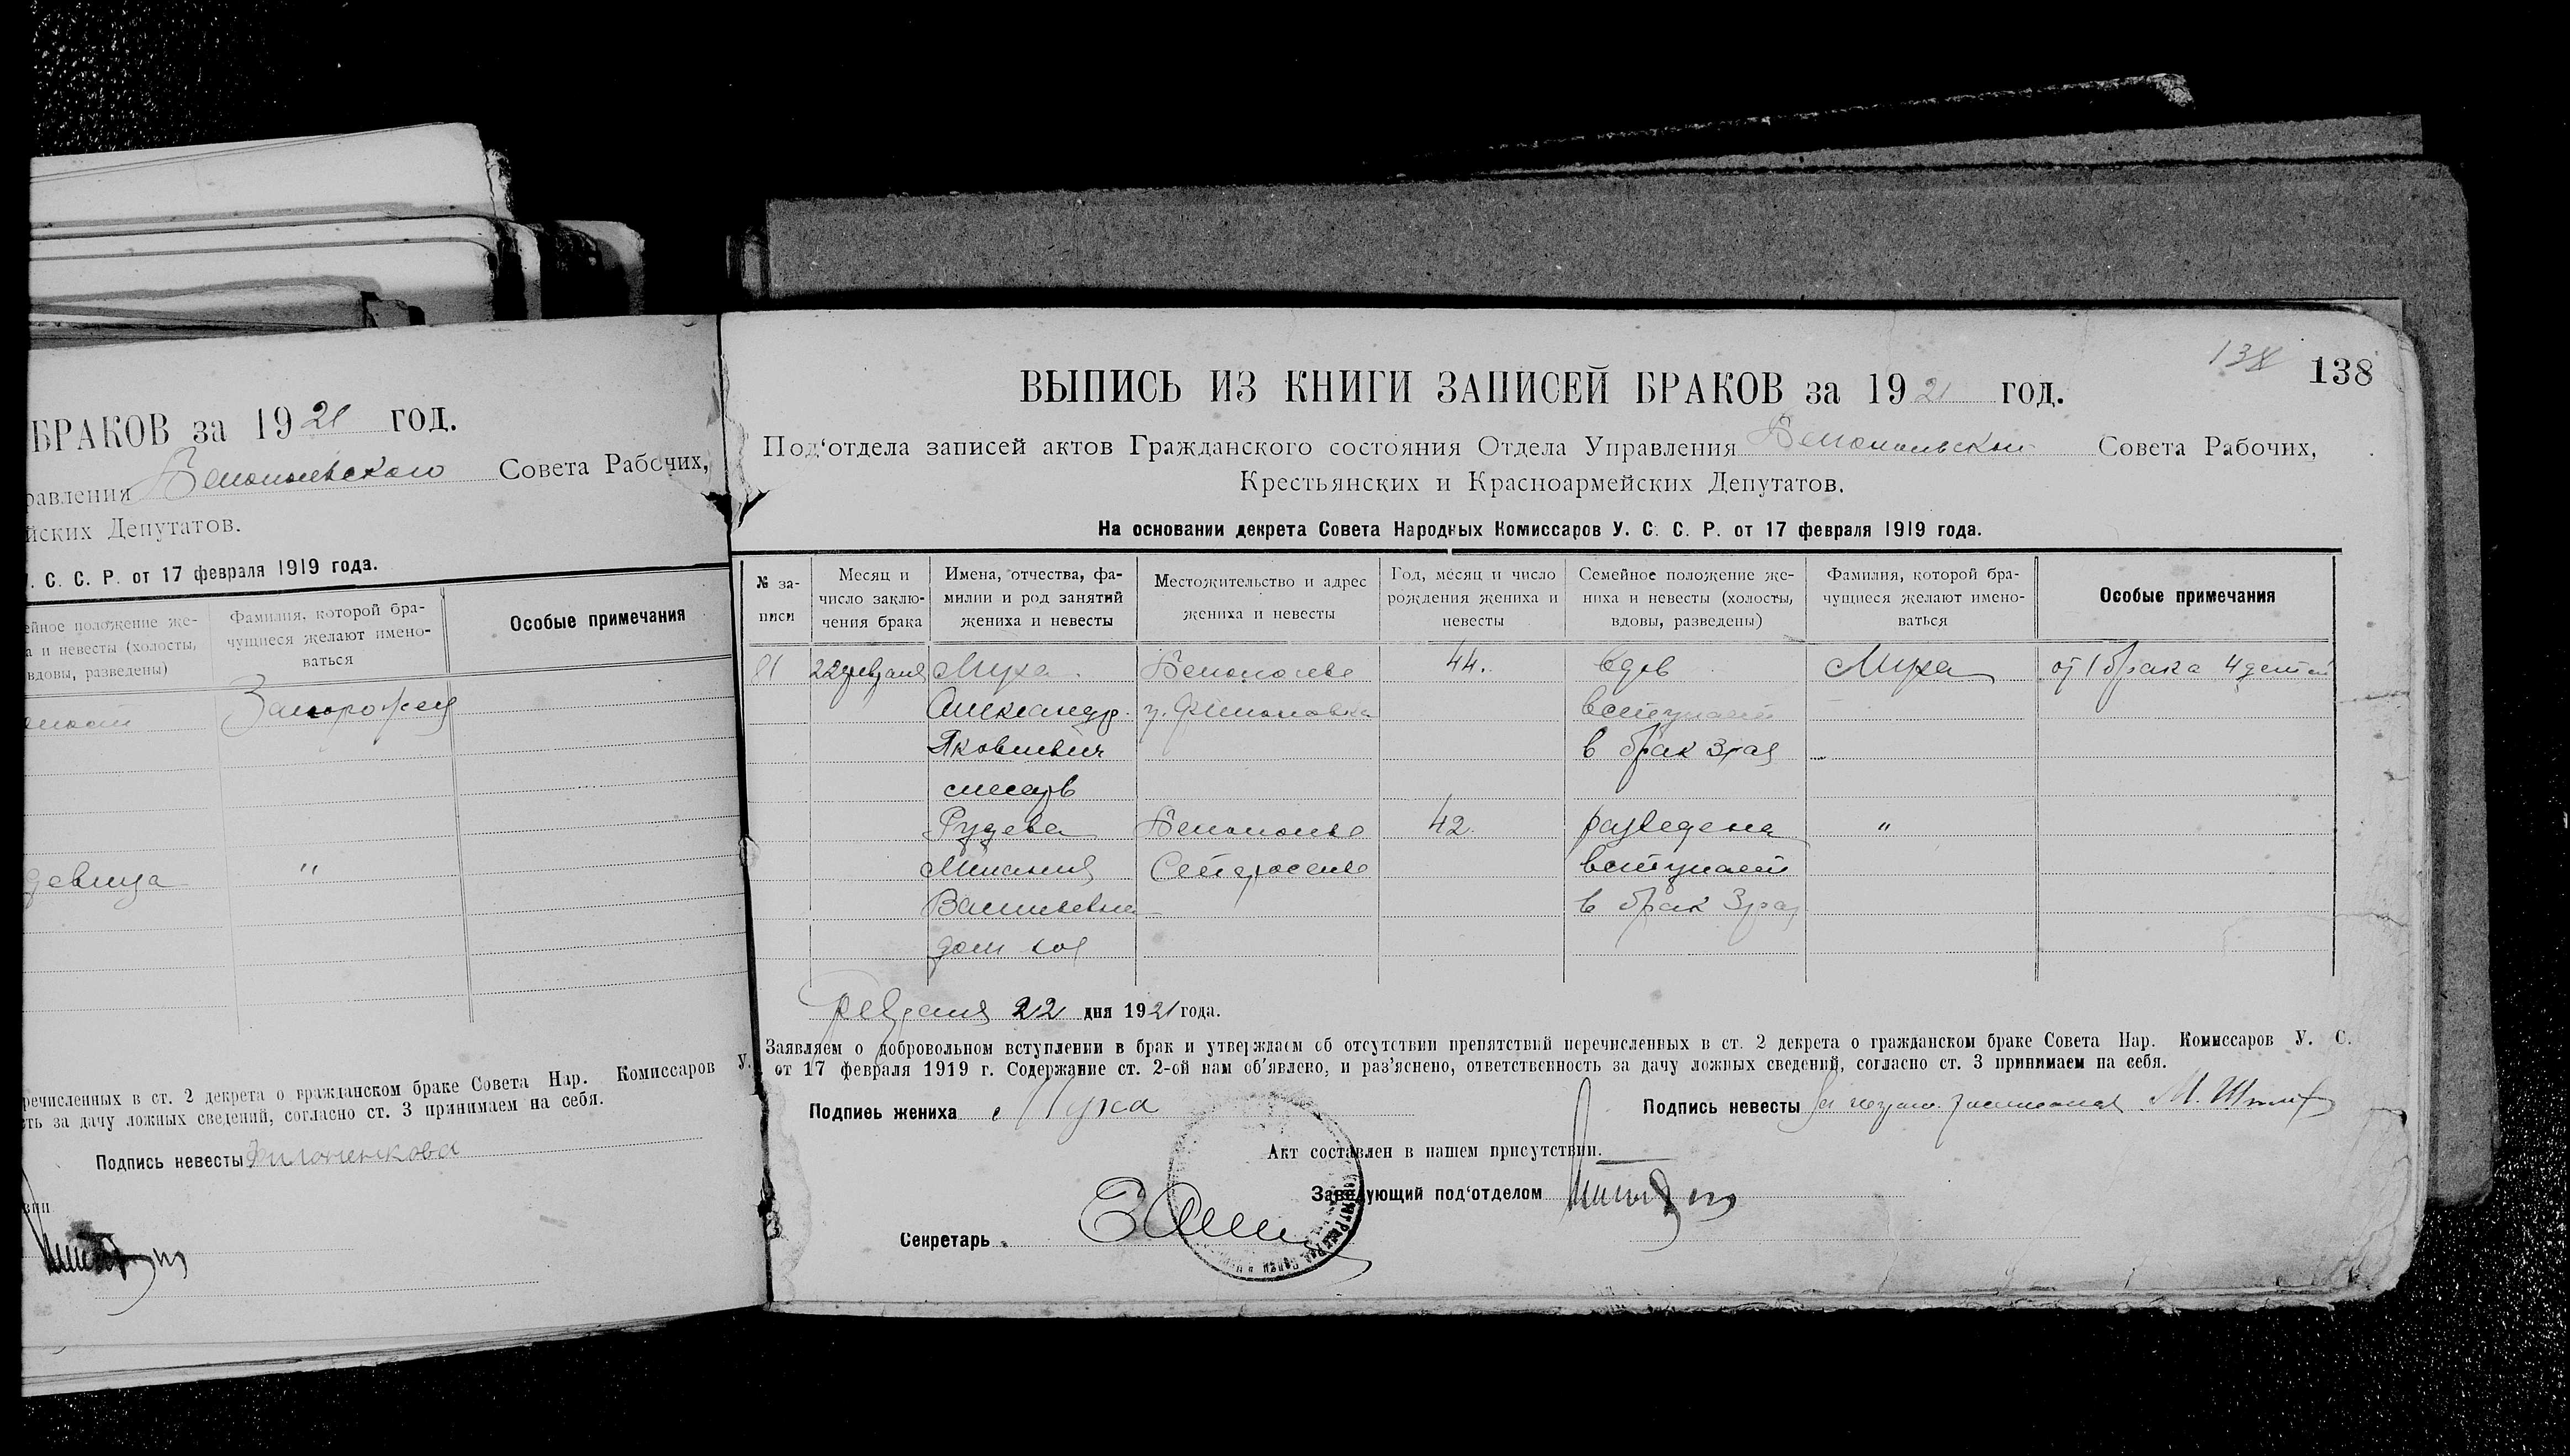 БРАКОВ за 1921 год.
равления Белопольского Совета Рабочих,
йских Депутатов.
. С. С. Р. от 17 февраля 1919 года.
ейное положение же-
а и невесты (холосты,
вдовы, разведены)
Фамилия, которой бра-
чущиеся желают имено-
ваться
Особые примечания
девица "
речисленных в ст. 2 декрета о гражданском браке Совета Нар. Комиссаров У.
сть за дачу ложных сведений, согласно ст. 3 принимаем на себя.
Подпись невесты Филоненкова
вии
138 138
ВЫПИСЬ ИЗ КНИГИ ЗАПИСЕЙ БРАКОВ за 1921 год.
Под‘отдела записей актов Гражданского состояния Отдела Управления Белопольской Совета Рабочих,
Крестьянских и Красноармейских Депутатов.
На основании декрета Совета Народных Комиссаров У. С. С. Р. от 17 февраля 1919 года.
№ за-
писи
Месяц и
число заклю-
чения брака
Имена, отчества, фа-
милии и род занятий
жениха и невесты
Местожительство и адрес
жениха и невесты
Год, месяц и число
рождения жениха и
невесты
Семейное положение же-
ниха и невесты (холосты,
вдовы, разведены)
Фамилия, которой бра-
чущиеся желают имено-
ваться
Особые примечания
81 22 февраля Муха Белополье 44. вдов Муха от 1 брака 4 детей
Александр у. Филоновка вступает
Яковлевич в брак 3 раз
слесарь
Рудева Белополье 42. разведена "
Милания Староселье вступает
Васильевна в брак 3 раз
дом хоз
февраля 22 дня 1921 года.
Заявляем о добровольном вступлении в брак и утверждаем об отсутствии препятствий перечисленных в ст. 2 декрета о гражданском браке Совета Нар. Комиссаров У. С.
от 17 февраля 1919 г. Содержание ст. 2-ой нам об'явлено, и раз'яснено, ответственность за дачу ложных сведений, согласно ст. 3 принимаем на себя.
Подпись жениха Муха
Подпись невесты
Акт составлен в нашем присутствии.
Заведующий под‘отделом
Секретарь